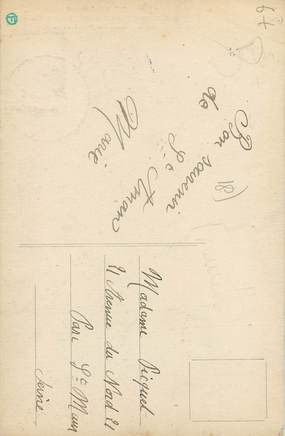 67
Bon souvenir
de
St Amand
(18)
Marie
Madame Picquel
21 Avenue du Nord 21
Parc St Maur
Seine